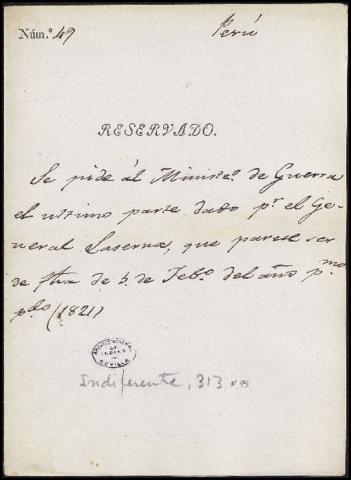 Núm.º 49
Perú
RESERVADO.
Se pide al Ministº. de Guerra
el ultimo parte dado pr. el Ge-
neral Laserna, que parece ser
de fha de 5. de Febº. del año pmo
pdo (1821)
ARCHIVO GENERAL
DE
INDIAS
SEVILLA
Indiferente, 313, N 95